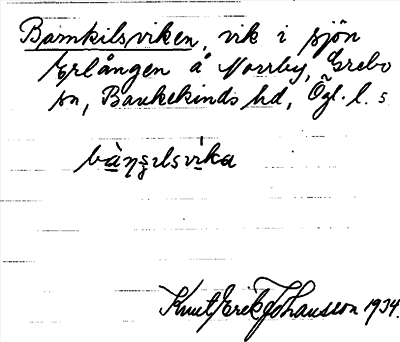 Bamkilsviken, vik i sjön
Erlången å Norrby, Grebo
sn, Bankekinds hd, Ögl. l. s.
bàŋʂɩlsvika
Knut Erik Johansson 1934.